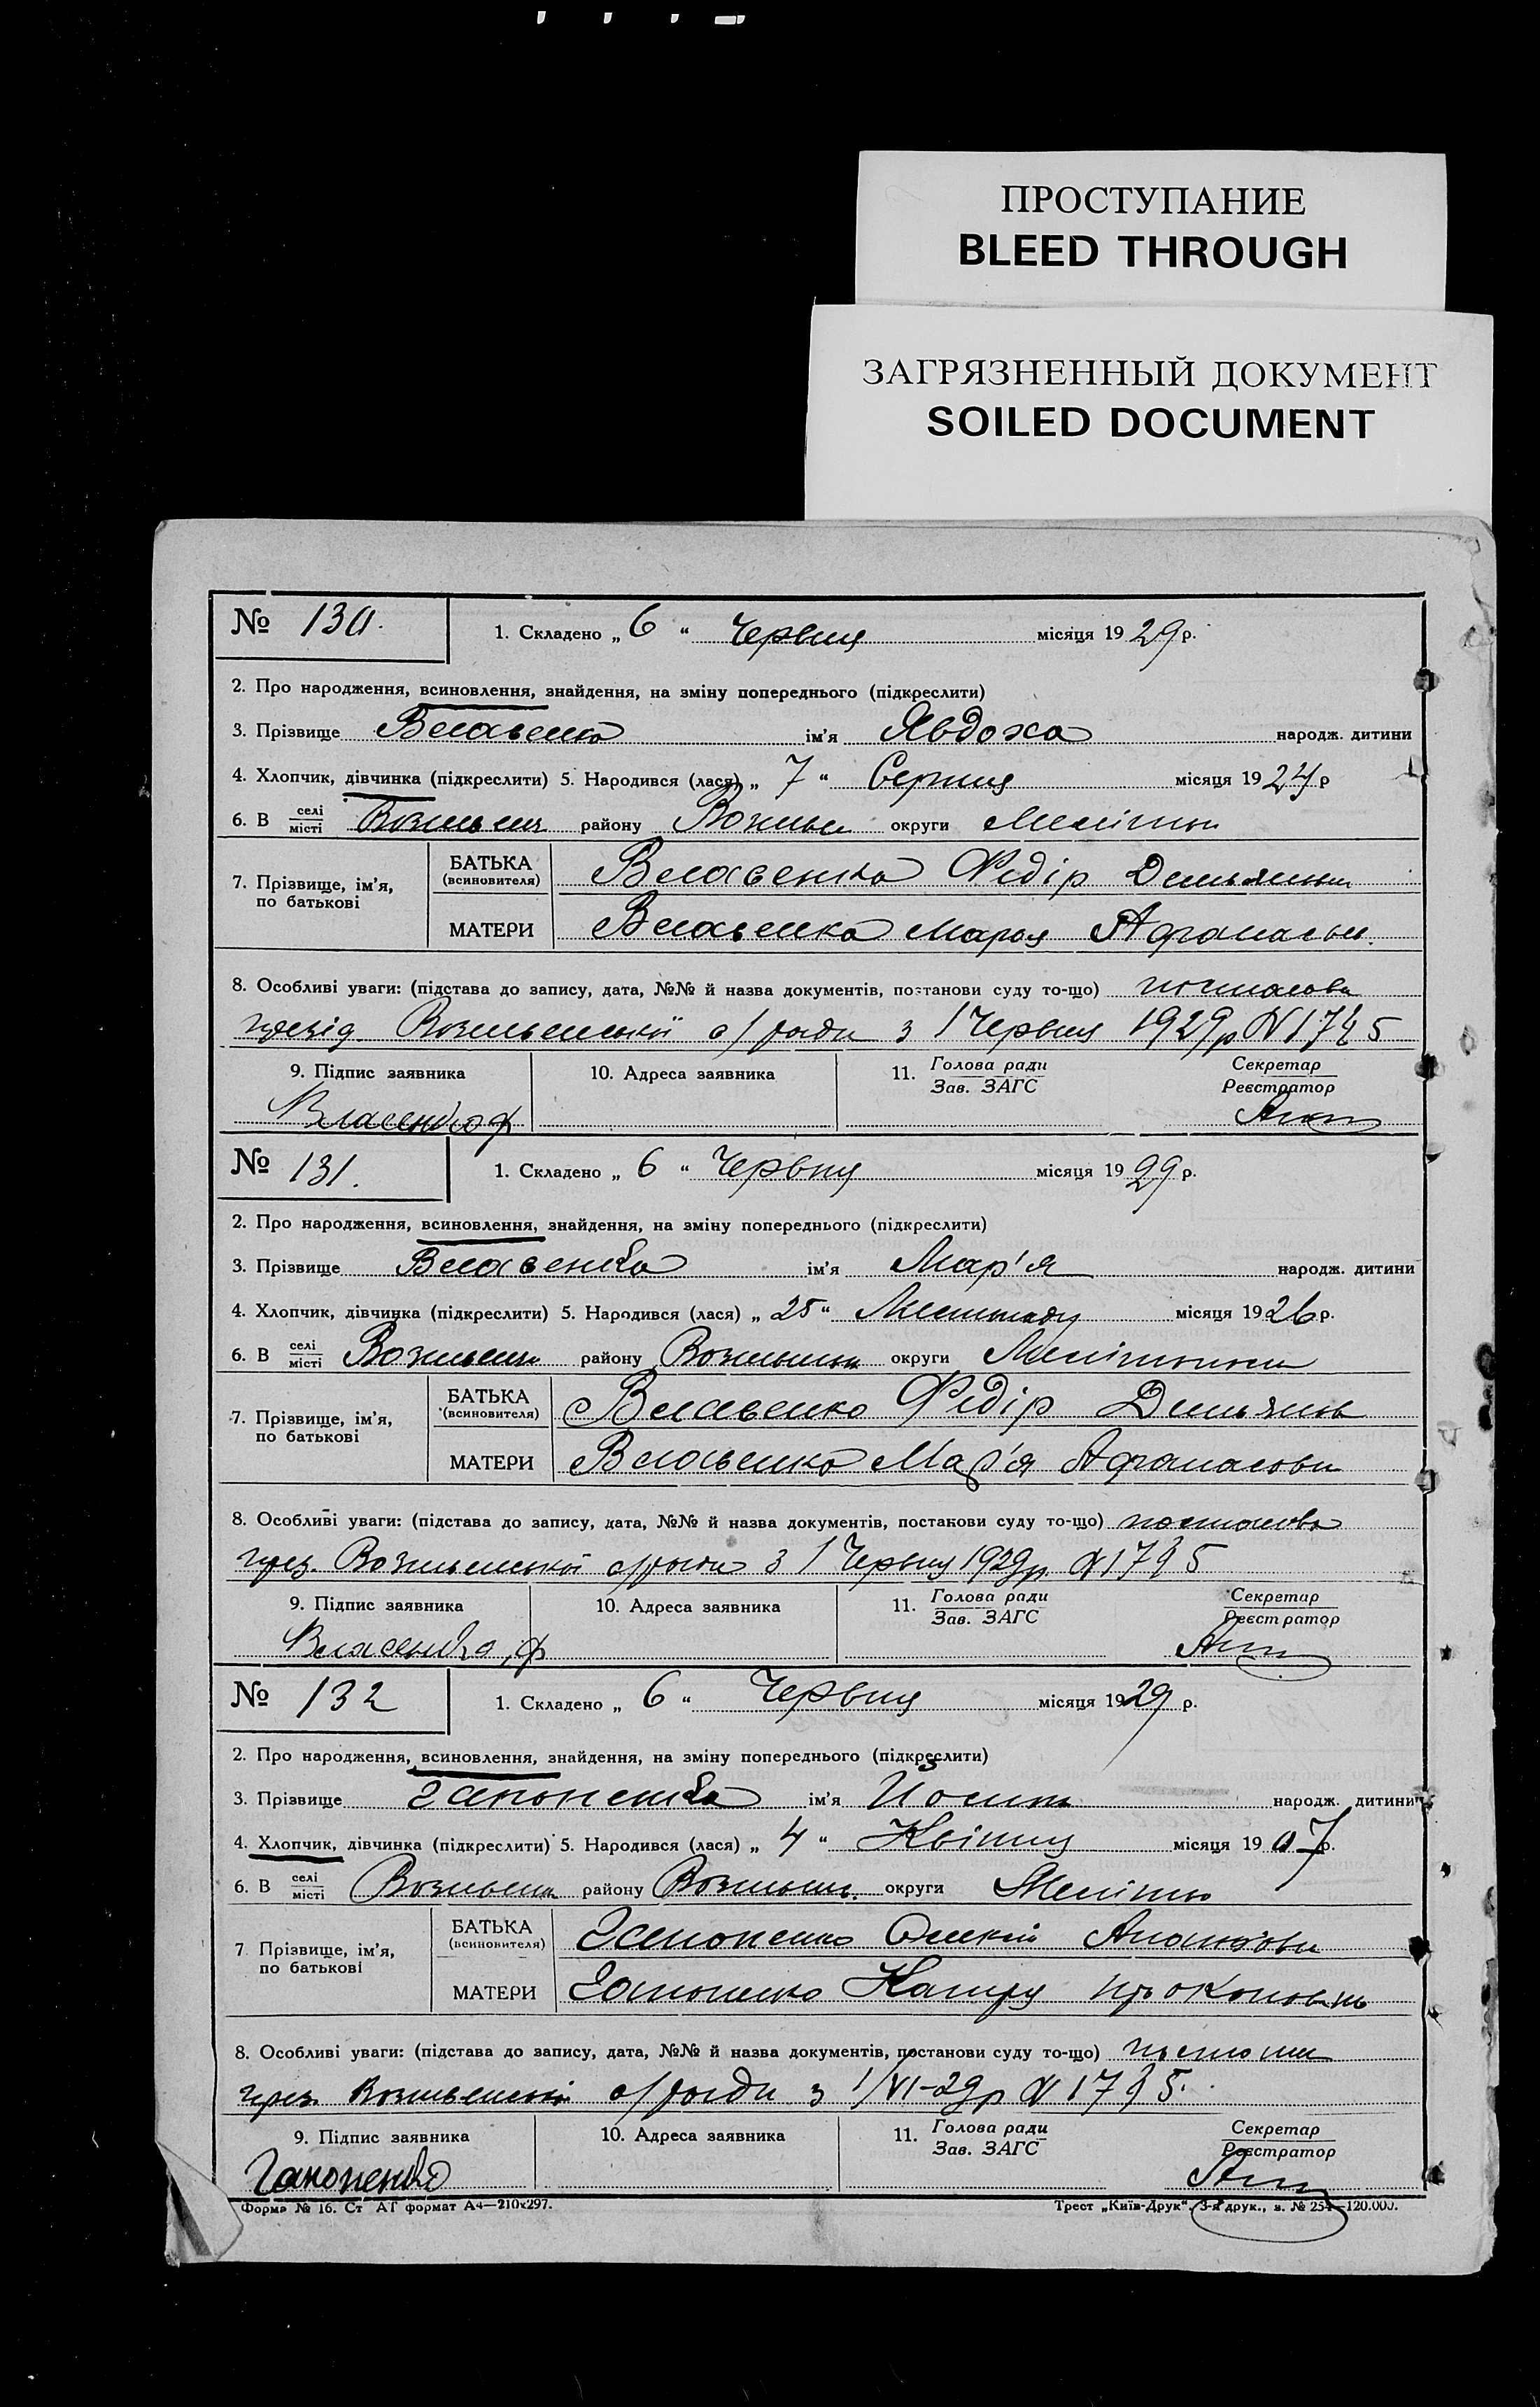 ПРОСТУПАНИЕ
BLEED THROUGH
ЗАГРЯЗНЕННЫЙ ДОКУМЕНТ
SOILED DOCUMENT
№ 130. 1. Складено „ 6 “ Червня місяця 1929 р.
2. Про народження, всиновлення, знайдення, на зміну попереднього (підкреслити)
3. Прізвище Власенко ім'я Явдоха народж. дитини
4. Хлопчик, дівчинка (підкреслити) 5. Народився (лася) „ 7 “ Серпня місяця 1924 р
6. В селі місті району округи
7. Прізвище, ім'я, по батькові
БАТЬКА (всиновителя) Власенко Федір
МАТЕРИ Власенко Марья
8. Особливі уваги: (підстава до запису, дата, №№ й назва документів, постанови суду то-що)
с/ради з 1 Червня 1929р N 1745
9. Підпис заявника 10. Адреса заявника 11. Голова ради Зав. ЗАГС Секретар Реєстратор
Власенко ф
№ 131. 1. Складено „ 6 “ Червня місяця 1929 р.
2. Про народження, всиновлення, знайдення, на зміну попереднього (підкреслити)
3. Прізвище Власенко ім'я Мар'я народж. дитини
4. Хлопчик, дівчинка (підкреслити) 5. Народився (лася) „ 25 “ Листопаду місяця 1926 р.
6. В селі місті району округи
7. Прізвище, ім'я, по батькові
БАТЬКА (всиновителя) Власенко Федір
МАТЕРИ Власенко Мар'я
8. Особливі уваги: (підстава до запису, дата, №№ й назва документів, постанови суду то-що)
с/ради з 1 Червня 1929р N 1745
9. Підпис заявника 10. Адреса заявника 11. Голова ради Зав. ЗАГС Секретар Реєстратор
Власенко, ф
№ 132 1. Складено „ 6 “ Червня місяця 1929 р.
2. Про народження, всиновлення, знайдення, на зміну попереднього (підкреслити)
3. Прізвище Гапоненко ім'я Йосип народж. дитини
4. Хлопчик, дівчинка (підкреслити) 5. Народився (лася) „ 4 “ Квітня місяця 1907 р.
6. В селі місті району округи
7 Прізвище, ім'я, по батькові
БАТЬКА (всиновителя) Гапоненко
МАТЕРИ Гапоненко
8. Особливі уваги: (підстава до запису, дата, №№ й назва документів, постанови суду то-що)
с/ради з 1/VI-29р N 1745.
9. Підпис заявника 10. Адреса заявника 11. Голова ради Зав. ЗАГС Секретар Реєстратор
Гапоненко
Форма № 16. Ст АГ формат А4—210x297. Трест „Київ-Друк“, 3-я друк., з. № 254—120.000.